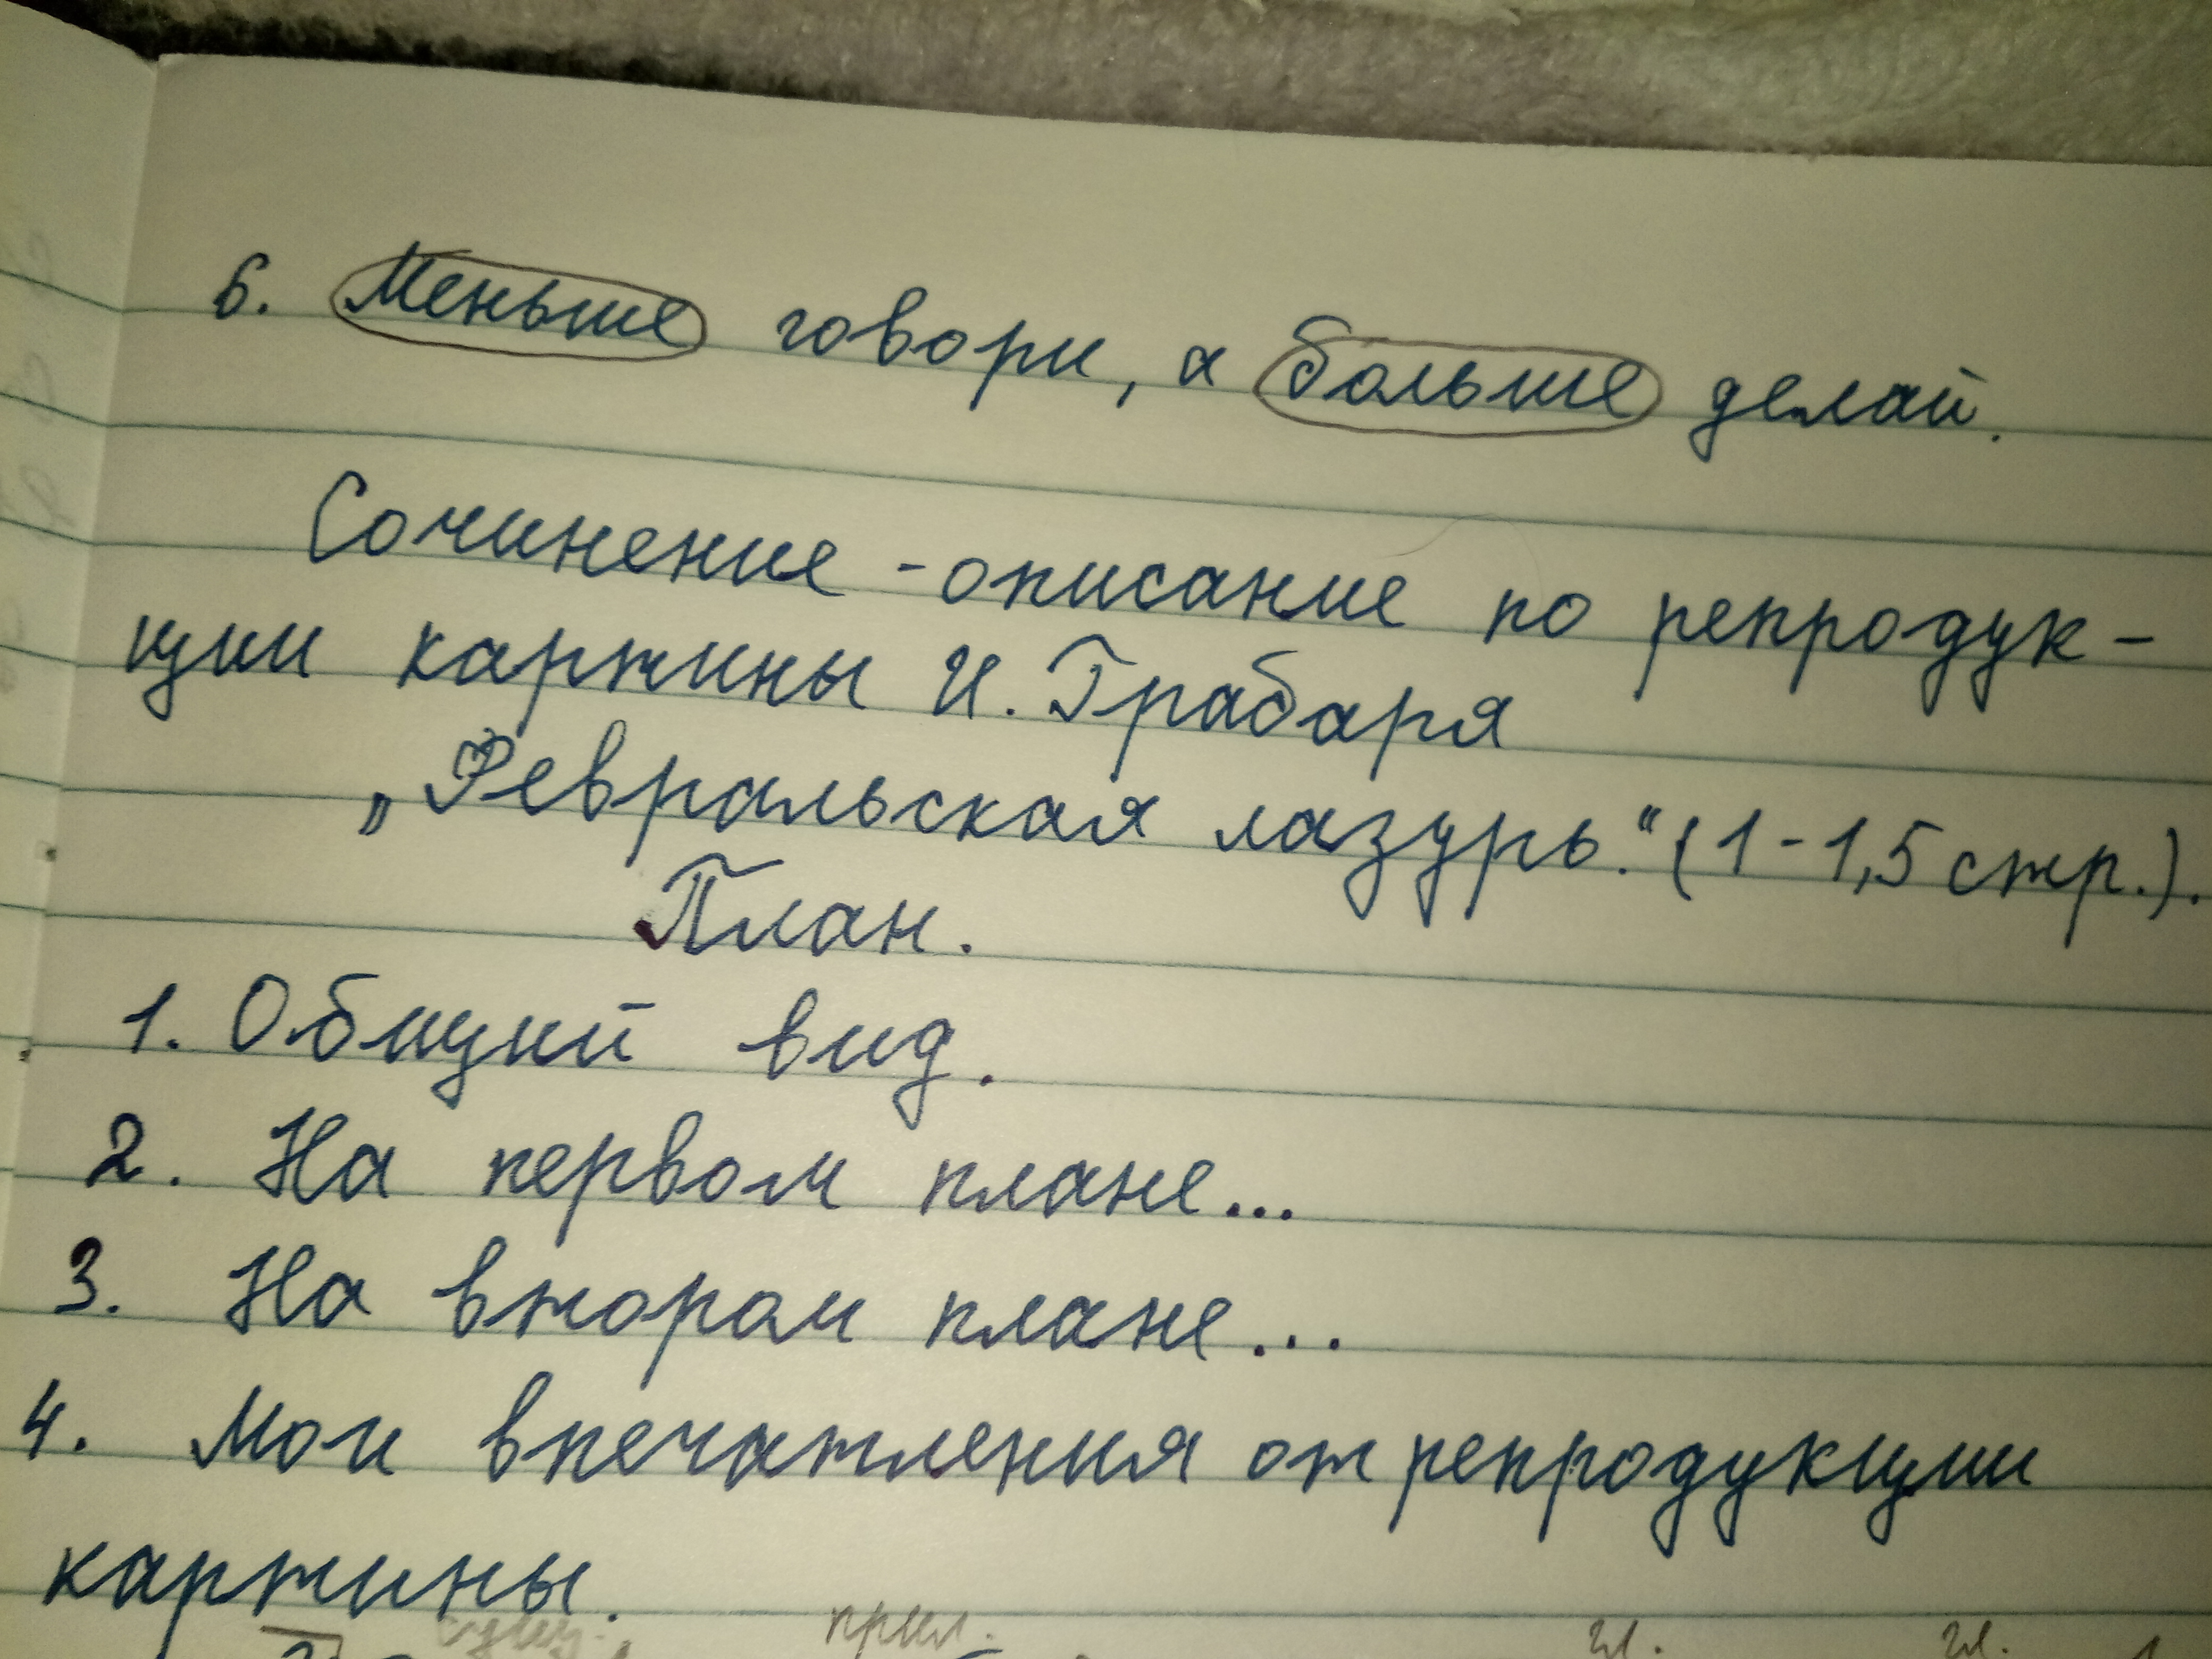 6. Меньше говори, а больше делай.
Сочинение - описание по репродук-
ции картины И. Грабаря
„Февральская лазурь." (1-1,5 стр.).
План.
1. Общий вид.
2. На первом плане...
3. На втором плане...
4. Мои впечатления от репродукции
картины.
сущ. прил. гл. гл.